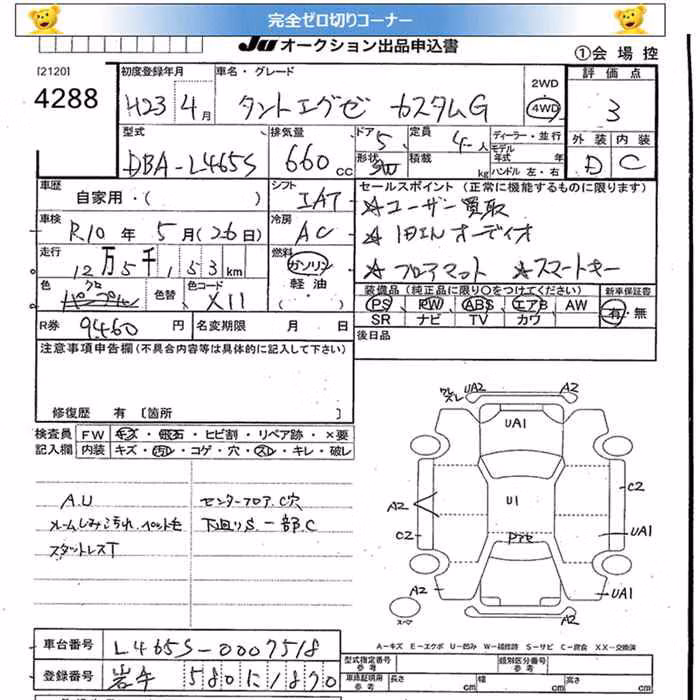 完全ゼロ切りコーナー
JU オークション出品申込書
①会場控
[2120]
4288
初度登録年月
H23 4月
車名・グレード
タントエグゼ カスタムG
2WD
4WD
評価点
3
型式
DBA-L465S
排気量
660 cc
ドア 5
形状 5W
定員 4人
積載 kg
ディーラー・並行
モデル年式 年
ハンドル 左・右
外装 内装
D C
車歴
自家用・( )
シフト
IAT
セールスポイント (正常に機能するものに限ります)
☆ユーザー買取
車検
R.10年 5月(26日)
冷房
AC
☆1DINオーディオ
走行
12万5千153km
燃料
ガソリン・軽油
☆フロアマット ☆スマートキー
色
クロ
色替
色コード
X11
( )
装備品 (純正品に限り○をつけてください)
新車保証書
PS PW ABS エアB AW
SR ナビ TV カワ
有・無
R券 9460円
名変期限 月 日
後日品
注意事項申告欄(不具合内容等は具体的に記入して下さい)
修復歴 有 [箇所 ]
検査員記入欄
FW キズ・飛石・ヒビ割・リペア跡・×要
内装 キズ・汚れ・コゲ・穴・スレ・キレ・破レ
A.U
センターフロア.C穴
ルームしみ汚れ.ペット毛
下廻りS.一部C
スタットレスT
UA2
A2
UA1
U1
A2
C2
C2
UA1
A2
UA1
スペア
A-キズ E-エクボ U-凹み W-補修跡 S-サビ C-腐食 XX-交換済
車台番号
L465S-0007518
登録番号
岩手 580 に 1870
型式指定番号
参考
類別区分番号
車庫証明用
参考
長さ cm
幅 cm
高さ cm